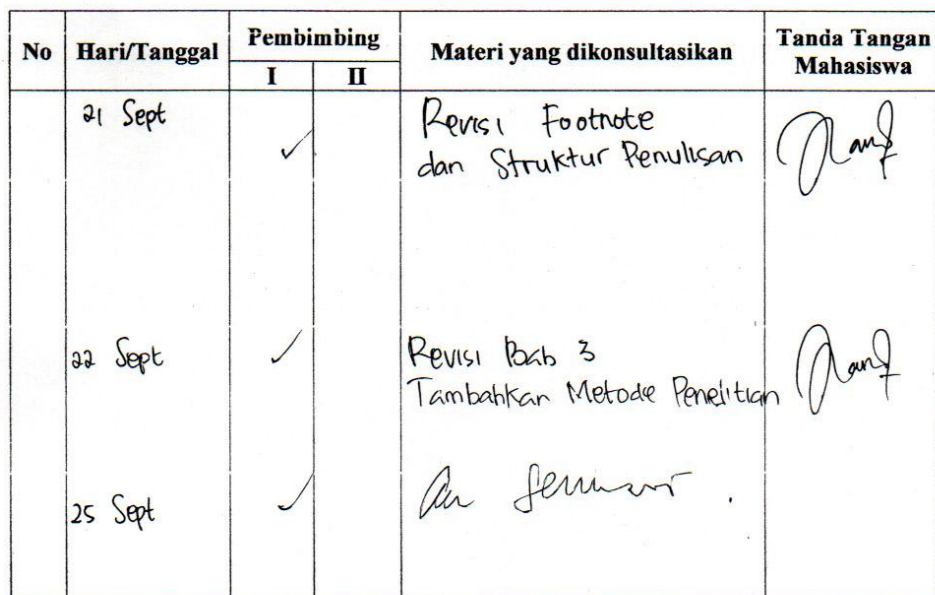 No Hari/Tanggal Pembimbing Materi yang dikonsultasikan Tanda Tangan Mahasiswa
I II
21 Sept ✓ Revisi Footnote
dan Struktur Penulisan
22 Sept ✓ Revisi Bab 3
Tambahkan Metode Penelitian
25 Sept ✓